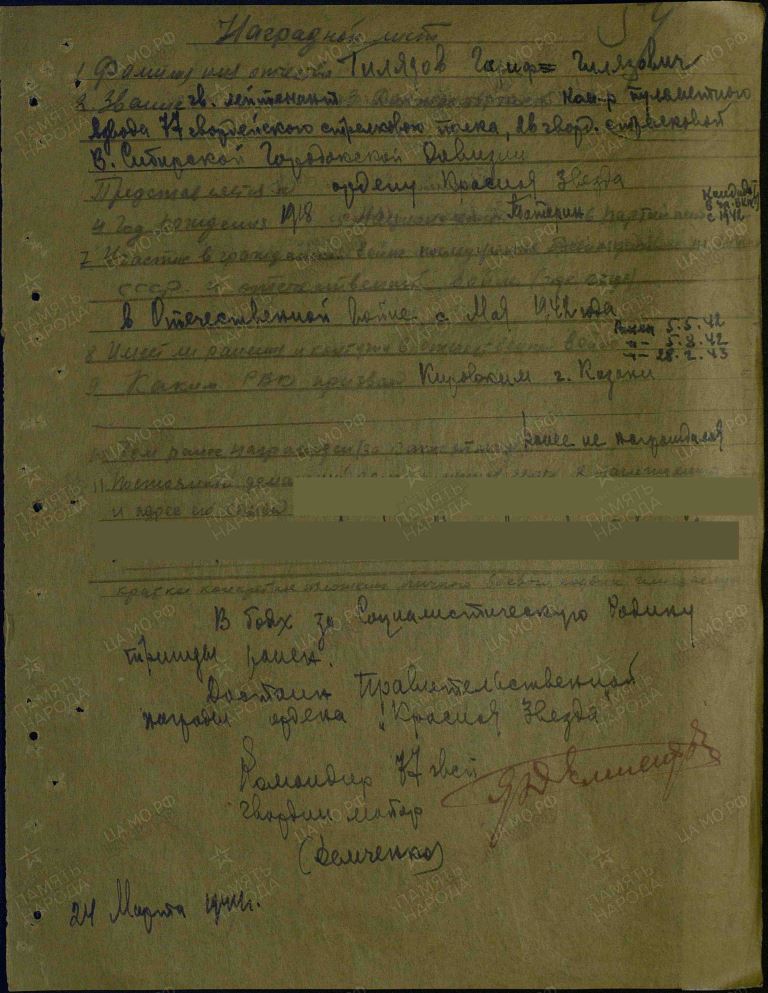 54
Наградной лист
1 Фамилия имя отчество Гилязов Гариф Гилязович
2. Звание гв. лейтенант 3 Должность ком-р пулеметного
взвода 77 гвардейского стрелкового полка, 26 гвард. стрелковой
В. Сибирской Городокской Дивизии
Представляется к ордену Красная Звезда
Кандидат
4 Год рождения 1918 5 Национальность Татарин 6 партийность
с 1942
7 Участие в гражданской войне
СССР и отечественной войне (где когда)
в Отечественной войне с Мая 1942 года
Ранен 5.5.42
8 Имеет ли ранения и контузии в отечественной войне -"- 5.8.42
-"- 28.2.43
9 Каким РВК призван Кировским г. Казани
10 Чем ранее награжден (за какие отличия) ранее не награждался
11 Постоянный дома
и адрес его семьи
краткое конкретное изложение личного боевого подвига или заслуг
В боях за Социалистическую Родину
трижды ранен.
Достоин Правительственной
награды ордена "Красная Звезда"
Командир 77 гвсп
гвардии майор
(Демченко)
24 Марта 1944г.